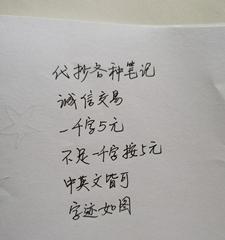 代抄各种笔记
诚信交易
一千字5元
不足一千字按5元
中英文皆可
字迹如图